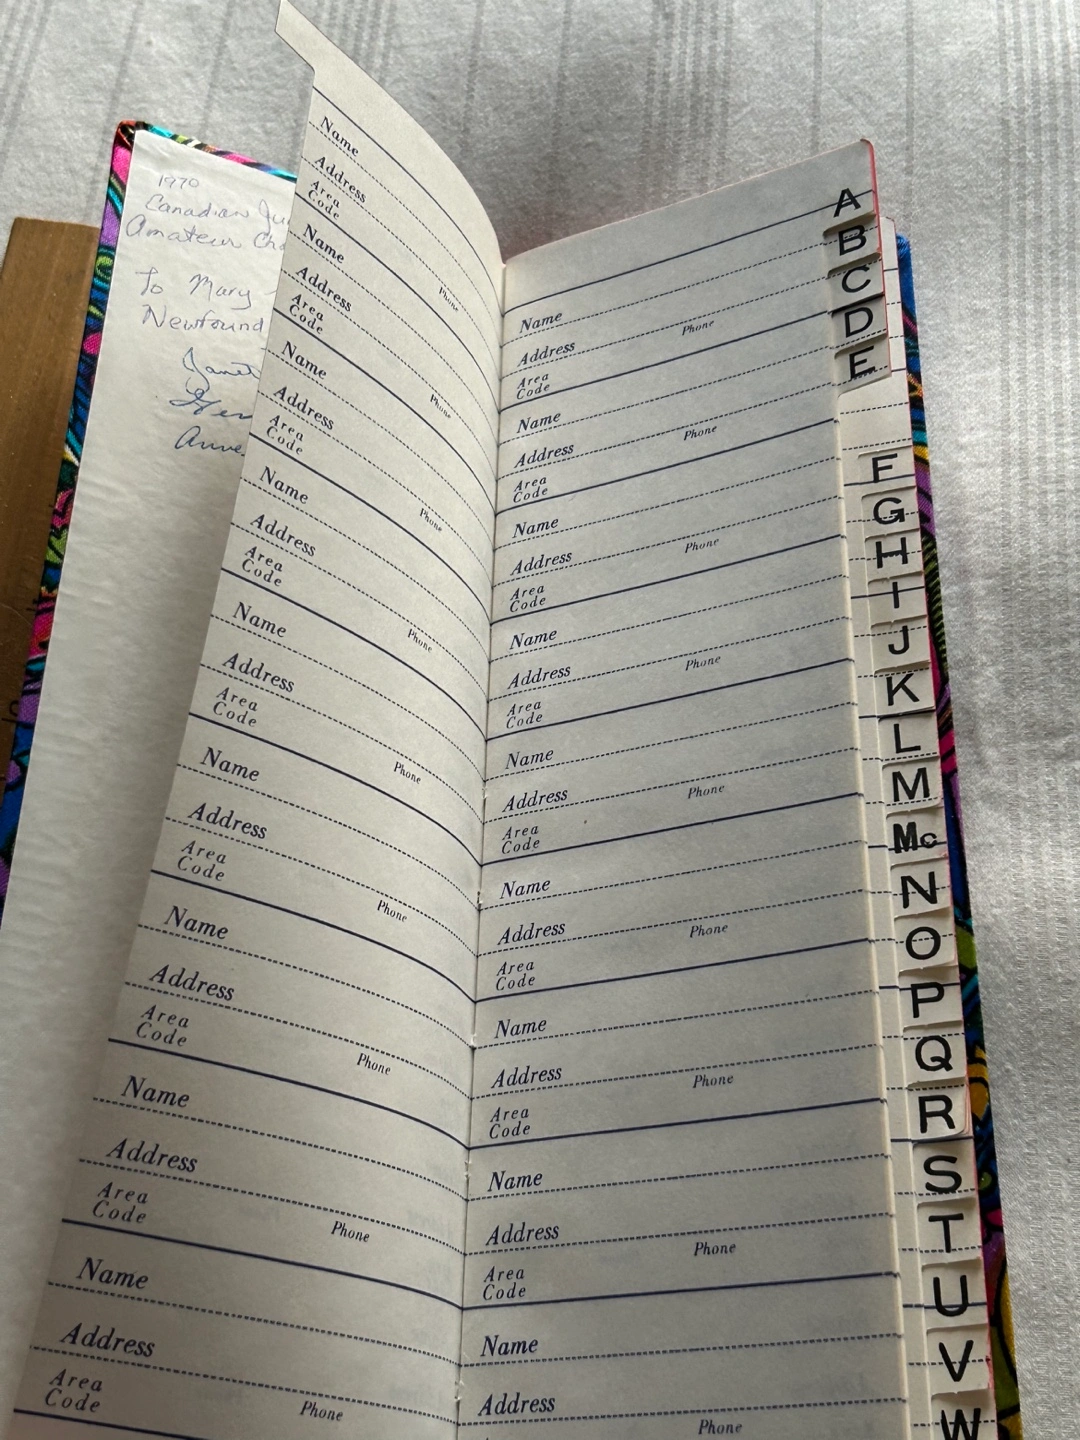 1970
Canadian Ju
Amateur Cha
To Mary
Newfound
Janet
Anne
Name
Address
Area
Code
Name
Phone
Address
Area
Code
Name
Phone
Address
Area
Code
Name
Phone
Address
Area
Code
Name
Phone
Address
Area
Code
Name
Phone
Address
Area
Code
Name
Phone
Address
Area
Code
Name
Phone
Address
Area
Code
Name
Phone
Address
Area
Code
Phone
Name
Phone
Address
Area
Code
Name
Phone
Address
Area
Code
Name
Phone
Address
Area
Code
Name
Phone
Address
Area
Code
Name
Phone
Address
Area
Code
Name
Phone
Address
Area
Code
Name
Phone
Address
Area
Code
Name
Phone
Address
Area
Code
Name
Phone
Address
A
B
C
D
E
F
G
H
I
J
K
L
M
Mc
N
O
P
Q
R
S
T
U
V
W